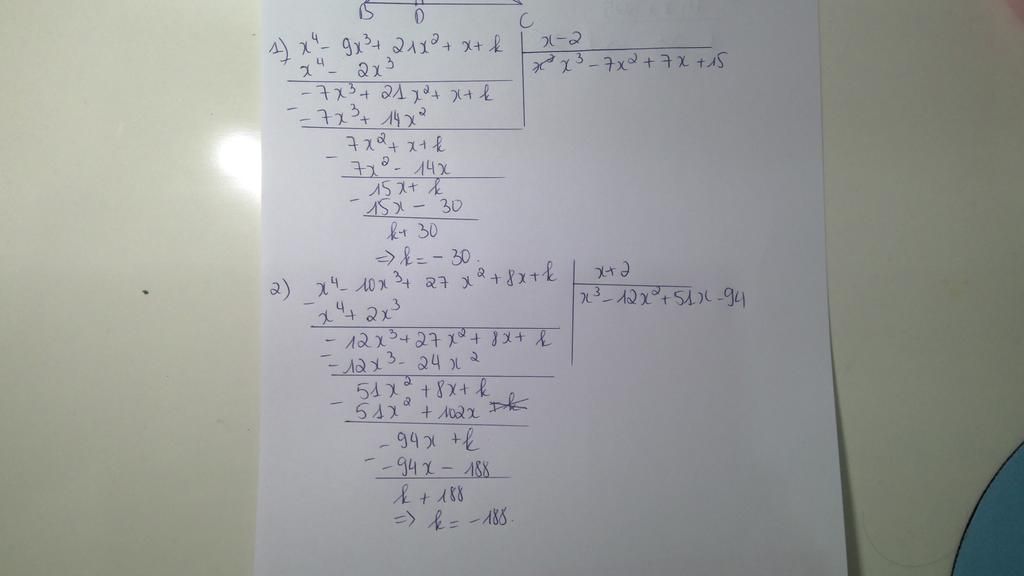 B D C
1) x⁴ - 9x³ + 21x² + x + k | x - 2
x⁴ - 2x³ | x³ - 7x² + 7x + 15
- 7x³ + 21x² + x + k
- - 7x³ + 14x²
7x² + x + k
- 7x² - 14x
15x + k
- 15x - 30
k + 30
=> k = - 30.
2) x⁴ - 10x³ + 27x² + 8x + k | x + 2
- x⁴ + 2x³ | x³ - 12x² + 51x - 94
- 12x³ + 27x² + 8x + k
- - 12x³ - 24x²
51x² + 8x + k
- 51x² + 102x
- 94x + k
- - 94x - 188
k + 188
=> k = - 188.